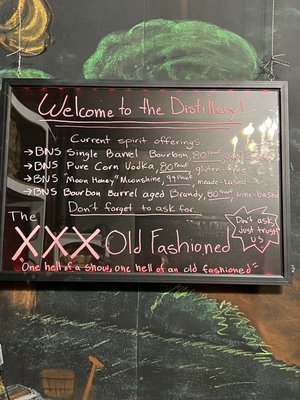 Welcome to the Distillery!
Current spirit offerings:
→BNS Single Barrel Bourbon 80 Proof
→BNS Pure Corn Vodka, 80 Proof gluten-free
→BNS "Moon Honey" Moonshine, 99 Proof, meade-based
→BNS Bourbon Barrel aged Brandy, 80 Proof wine-based
Don't forget to ask for...
The
XXX Old Fashioned
Don't ask,
just trust
US
"One hell of a show, one hell of an old fashioned"